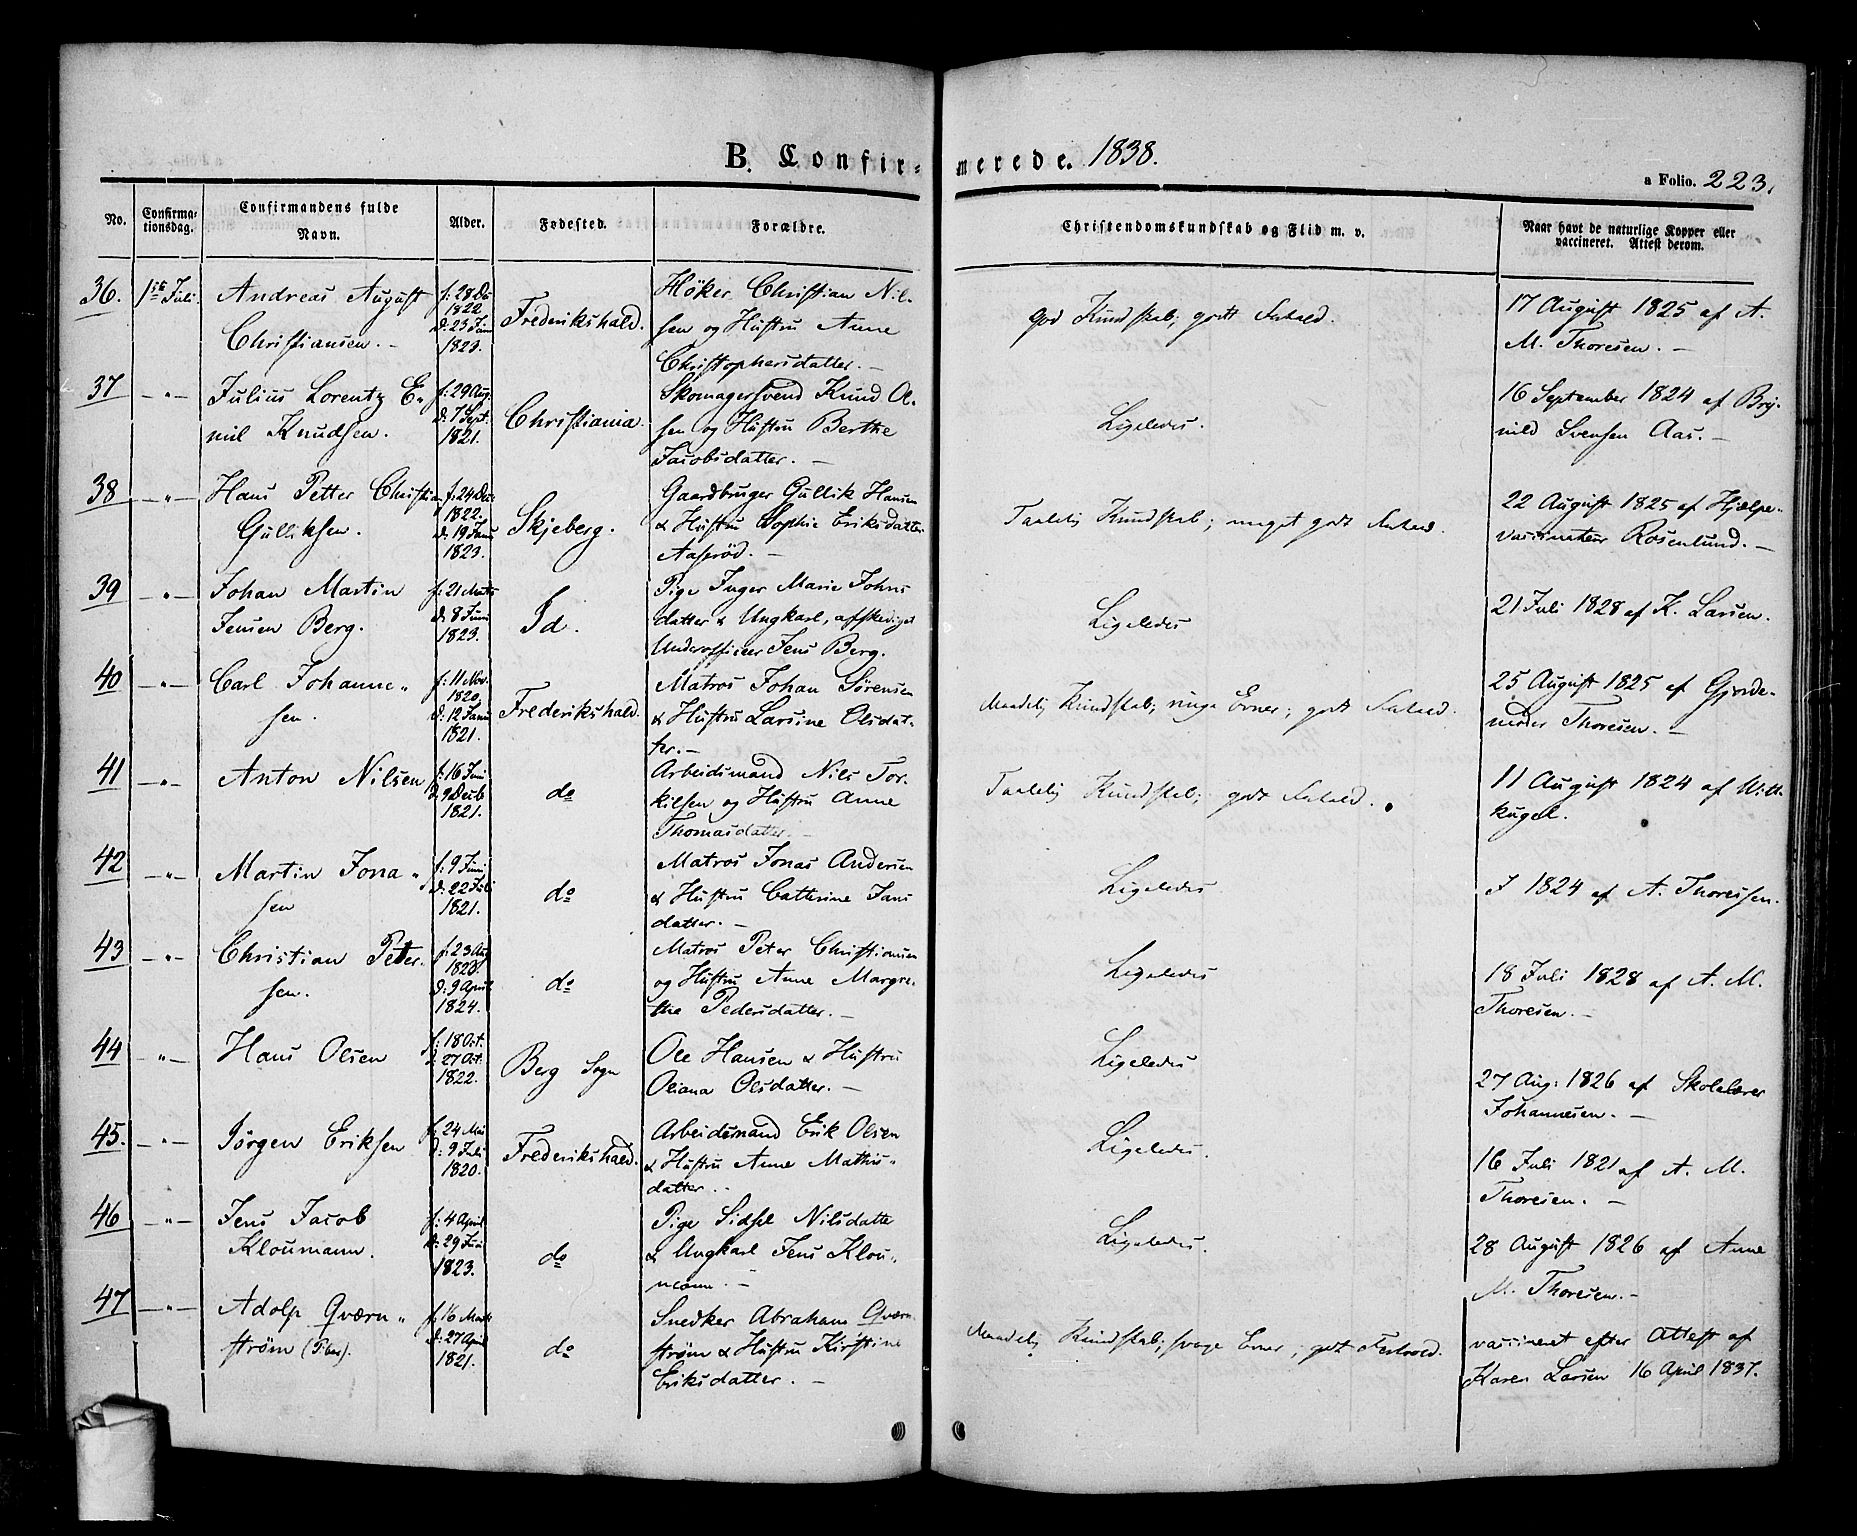 B. Confirmerede. 1838.
a Folio. 223.
No.
Confirmationsdag.
Confirmandens fulde Navn.
Alder.
Fødested.
Forældre.
Christendomskundskab og Flid m. v.
Naar havt de naturlige Kopper eller vaccineret. Attest derom.
36. 1ste Juli. Andreas August
Christiansen. -
f: 28 De
1822
d: 23 Juni
1823.
Frederikshald.
Höker Christian Nil-
sen og Hustru Anne
Christophersdatter. -
god Kundskab; godt Forhold.
17 August 1825 af A.
M. Thoresen. -
37 - " - Julius Lorentz E"
mil Knudsen.
f: 29 Aug.
d: 7 Sept.
1821.
Christiania.
Skomagersvend Knud Ol-
sen og Hustru Berthe
Jacobsdatter. -
Ligeledes.
16 September 1824 af Bry-
nild Svensen Aas. -
38 - " - Hans Petter Christian
Gulliksen.
f: 24 Dec.
1822.
d: 19 Janu
1823.
Skjeberg.
Gaardbruger Gullik Hansen
& Hustru Sophie Eriksdatter
Aaserød. -
Taalelig Kundskab; meget godt Forhold.
22 August 1825 af Hjælpe-
vaccinateur Rosenlund. -
39 - " - Johan Martin
Jensen Berg.
f: 21 Marts
d: 8 Juni
1823.
Id.
Pige Inger Marie Johns
datter & Ungkarl, afskediget
Underofficeer Jens Berg.
Ligeledes
21 Juli 1828 af K. Larsen.
40 - " - Carl Johanne"
sen.
f: 11 Nov.
1820.
d: 12 Janu
1821.
Frederikshald.
Matros Johan Sørensen
& Hustru Larsine Olsdat-
ter. -
Maadelig Kundskab; ringe Evner; godt Forhold.
25 August 1825 af Gjorde-
moder Thoresen. -
41 - " - Anton Nilsen
f: 16 Juni
d: 9 Decb
1821.
do
Arbeidsmand Nils Tor-
kilsen og Hustru Anne
Thomasdatter. -
Taalelig Kundskab; godt Forhold.
11 August 1824 af Witt-
kugel.
42 - " - Martin Jona"
sen
f: 9 Juni
d: 22 Juli
1821.
do
Matros Jonas Andersen
& Hustru Catterine Jans
datter. -
Ligeledes
I 1824 af A. Thoressen.
43 - " - Christian Peter-
sen.
f: 23 Aug
1823.
d: 9 April
1824.
do
Matros Peter Christiansen
og Hustru Anne Margre-
the Pedersdatter. -
Ligeledes
18 Juli 1828 af A. M.
Thoresen. -
44 " - Hans Olsen
f: 18 Oct.
d: 27 Oct.
1822.
Berg Sogn
Ole Hansen & Hustru
Oliana Olsdatter. -
Ligeledes
27 Aug: 1826 af Skolelærer
Johannesen. -
45. - " - Jörgen Eriksen
f: 24 Mai
d: 9 Juli
1820.
Frederikshald.
Arbeidsmand Erik Olsen
& Hustru Anne Mathis"
datter. -
Ligeledes.
16 Juli 1821 af A. M.
Thoresen. -
46 - " - Jens Jacob
Kloumann.
f: 4 April
d: 29 Jun
1823.
do
Pige Sidsel Nilsdatte
& Ungkarl Jens Klou"
mann. -
Ligeledes.
28 August 1826 af Anne
M. Thoresen. -
47 - " - Adolp Qværn"
strøm
f: 16 Marts
d: 27 April
1821.
do
Snedker Abraham Qværn
strøm & Hustru Kirstine
Eriksdatter. -
Maadelig Kundskab; svage Evner; godt Forhold.
vaccineret efter Attest af
Karen Larsen 16 April 1837.